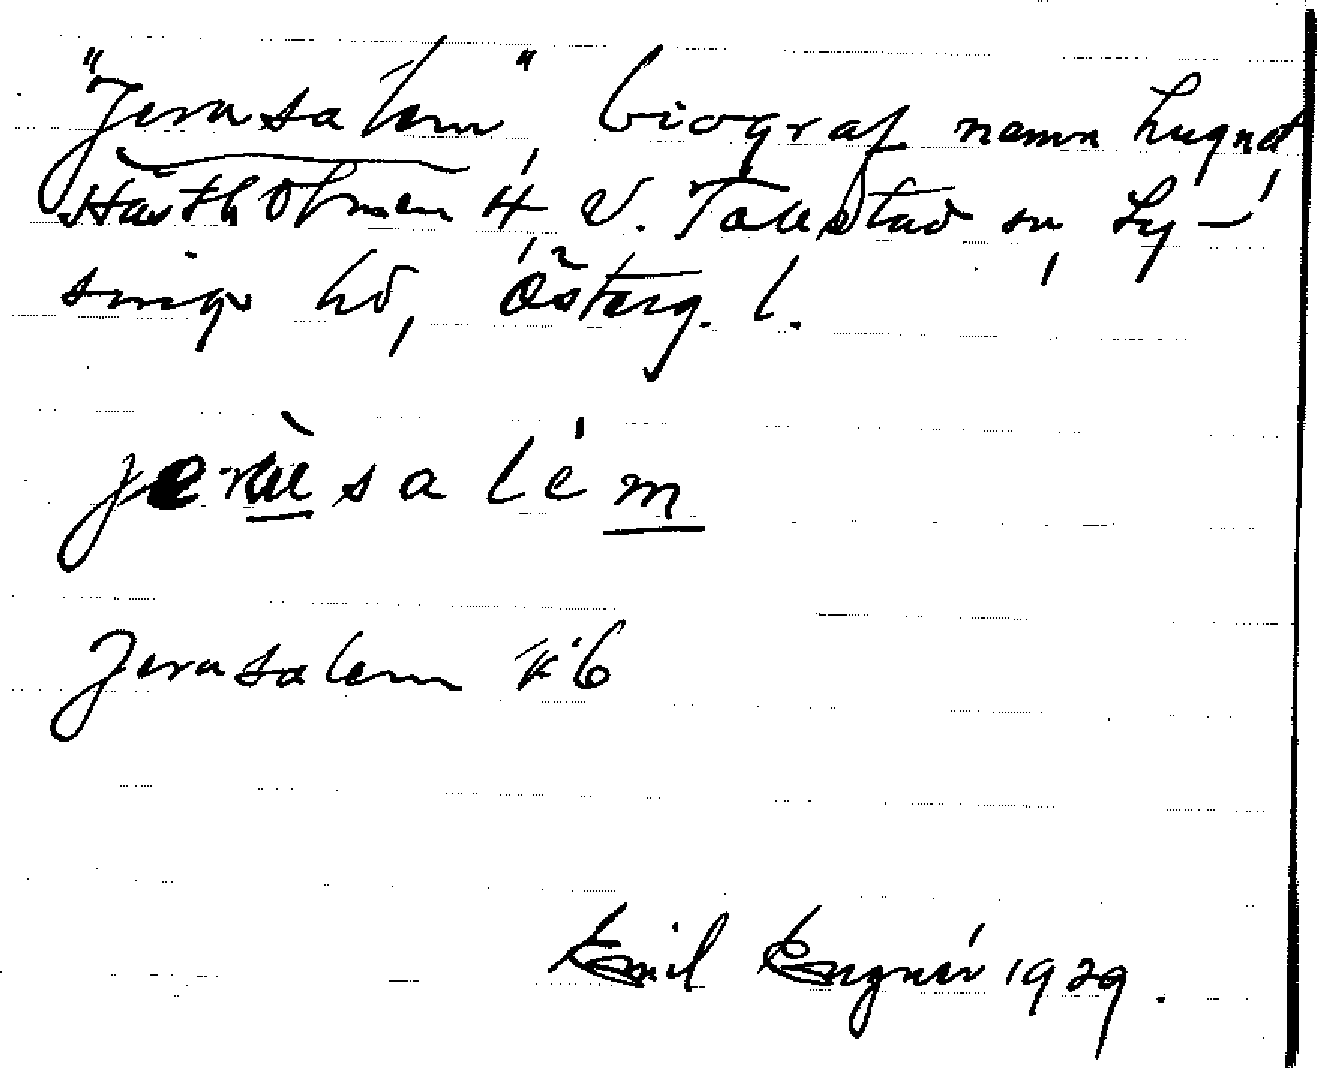 "Jerusalem" biograf namn lugnet
Hästholmen 4, V. Tollstad sn, Ly-
sings hd, Österg. l.
jerùsalém
Jerusalem
Emil Engnér 1929.